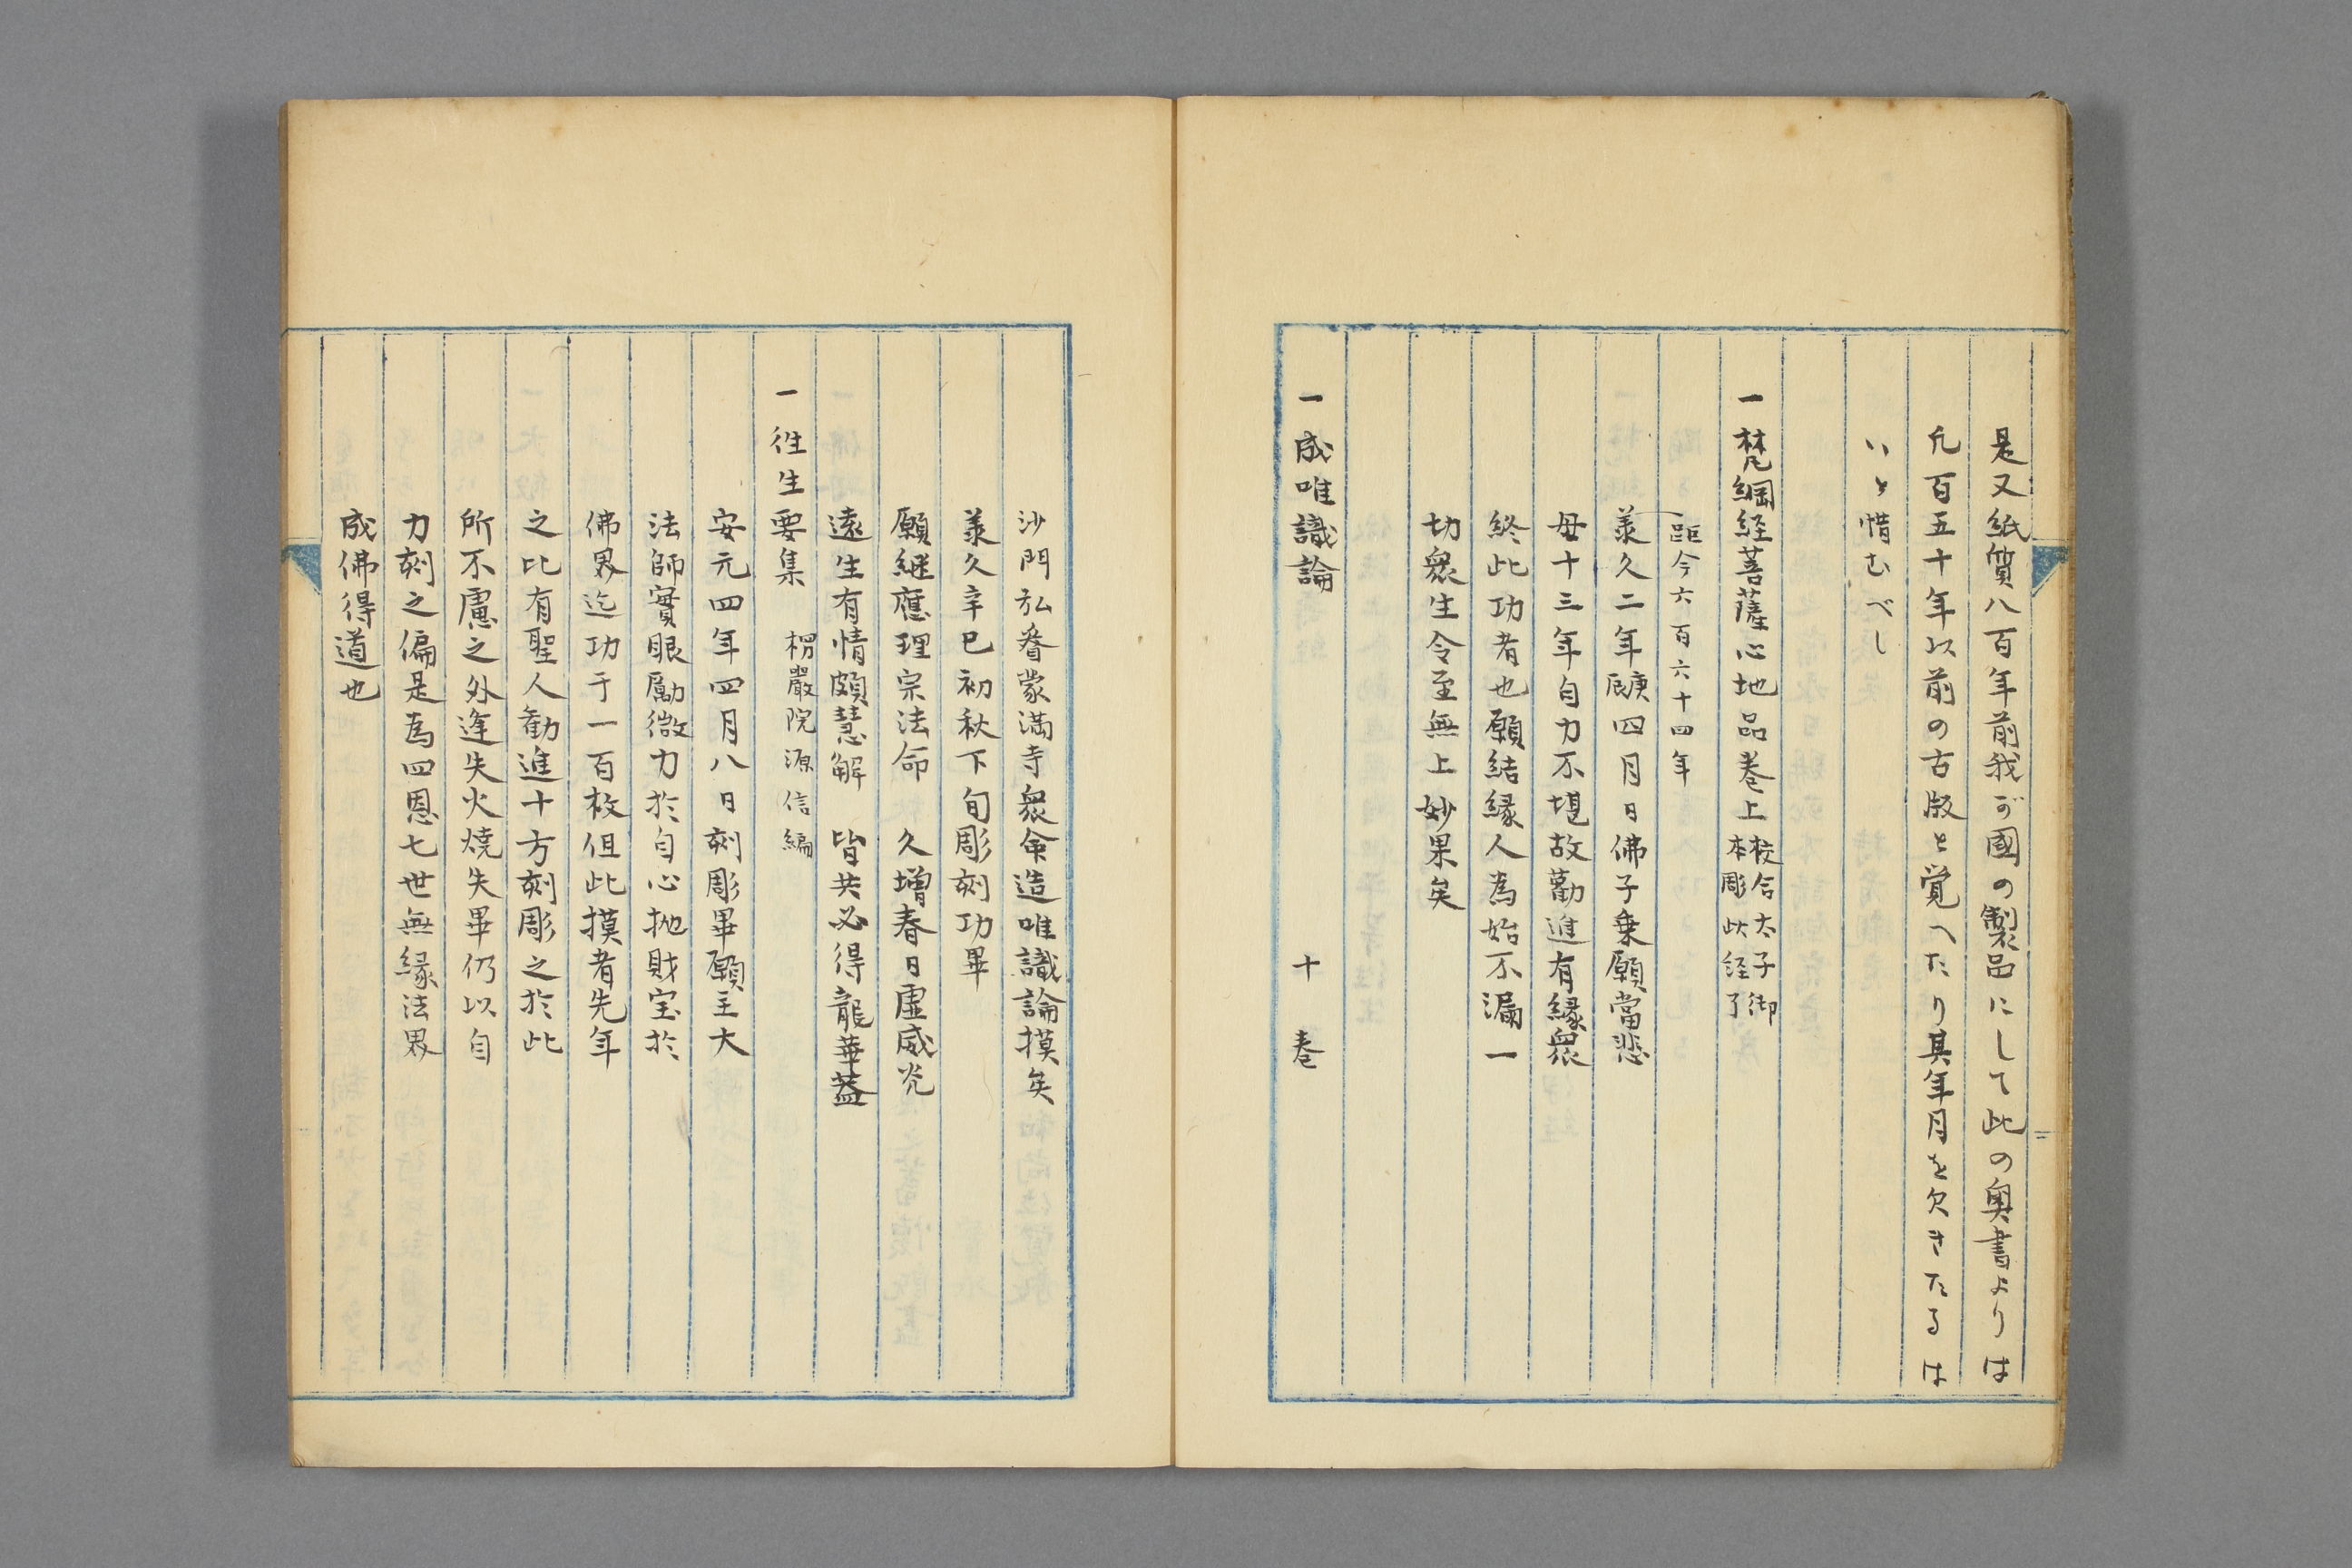 是又紙質八百年前我が國の製品にして此の奥書よりは
凡百五十年以前の古版と覚へたり其年月を欠きたるは
いと惜むべし
一梵綱経菩薩心地品巻上 校合太子御
本彫此経了
距今六百六十四年
羕久二年庚辰四月日佛子乗願當悲
母十三年自力不堪故勸進有縁衆
終此功者也願結縁人為始不漏一
切衆生令至無上妙果矣
一成唯識論 十巻
沙門弘眷蒙満寺衆命造唯識論摸矣
羕久辛巳初秋下旬彫刻功畢
願継應理宗法命 久增春日虛威光
遠生有情頗慧解 皆共必得龍華益
一往生要集 楞嚴院源信編
安元四年四月八日刻彫畢願主大
法師實眼勵微力於自心抛財宝於
佛界迄功于一百枚但此摸者先年
之比有聖人勧進十方刻彫之於此
所不慮之外逢失火燒失畢仍以自
力刻之偏是為四恩七世無緣法界
成佛得道也